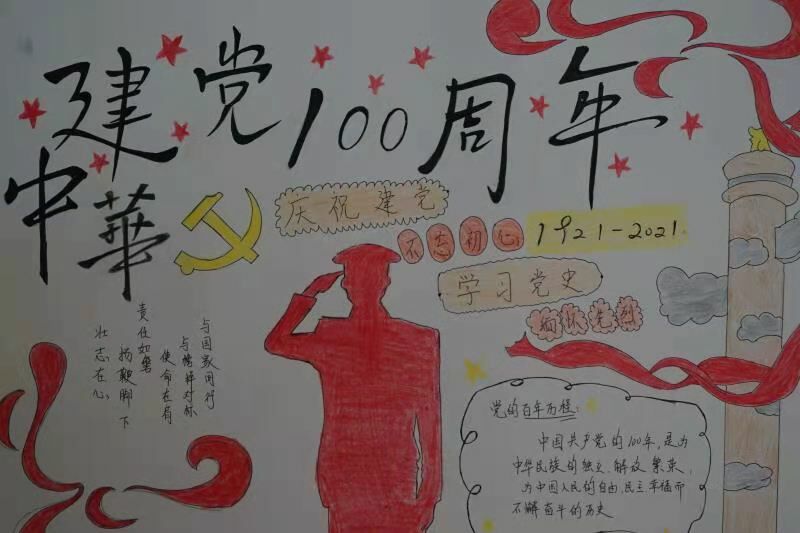 建党100周年
中華
庆祝建党
不忘初心
1921-2021.
学习党史
缅怀先烈
与国家同行
与榜样对标
使命在肩
责任如磐
扬鞭脚下
壮志在心
党的百年历程:
中国共产党的100年,是为
中华民族的独立、解放繁荣,
为中国人民的自由、民主、幸福而
不解奋斗的历史